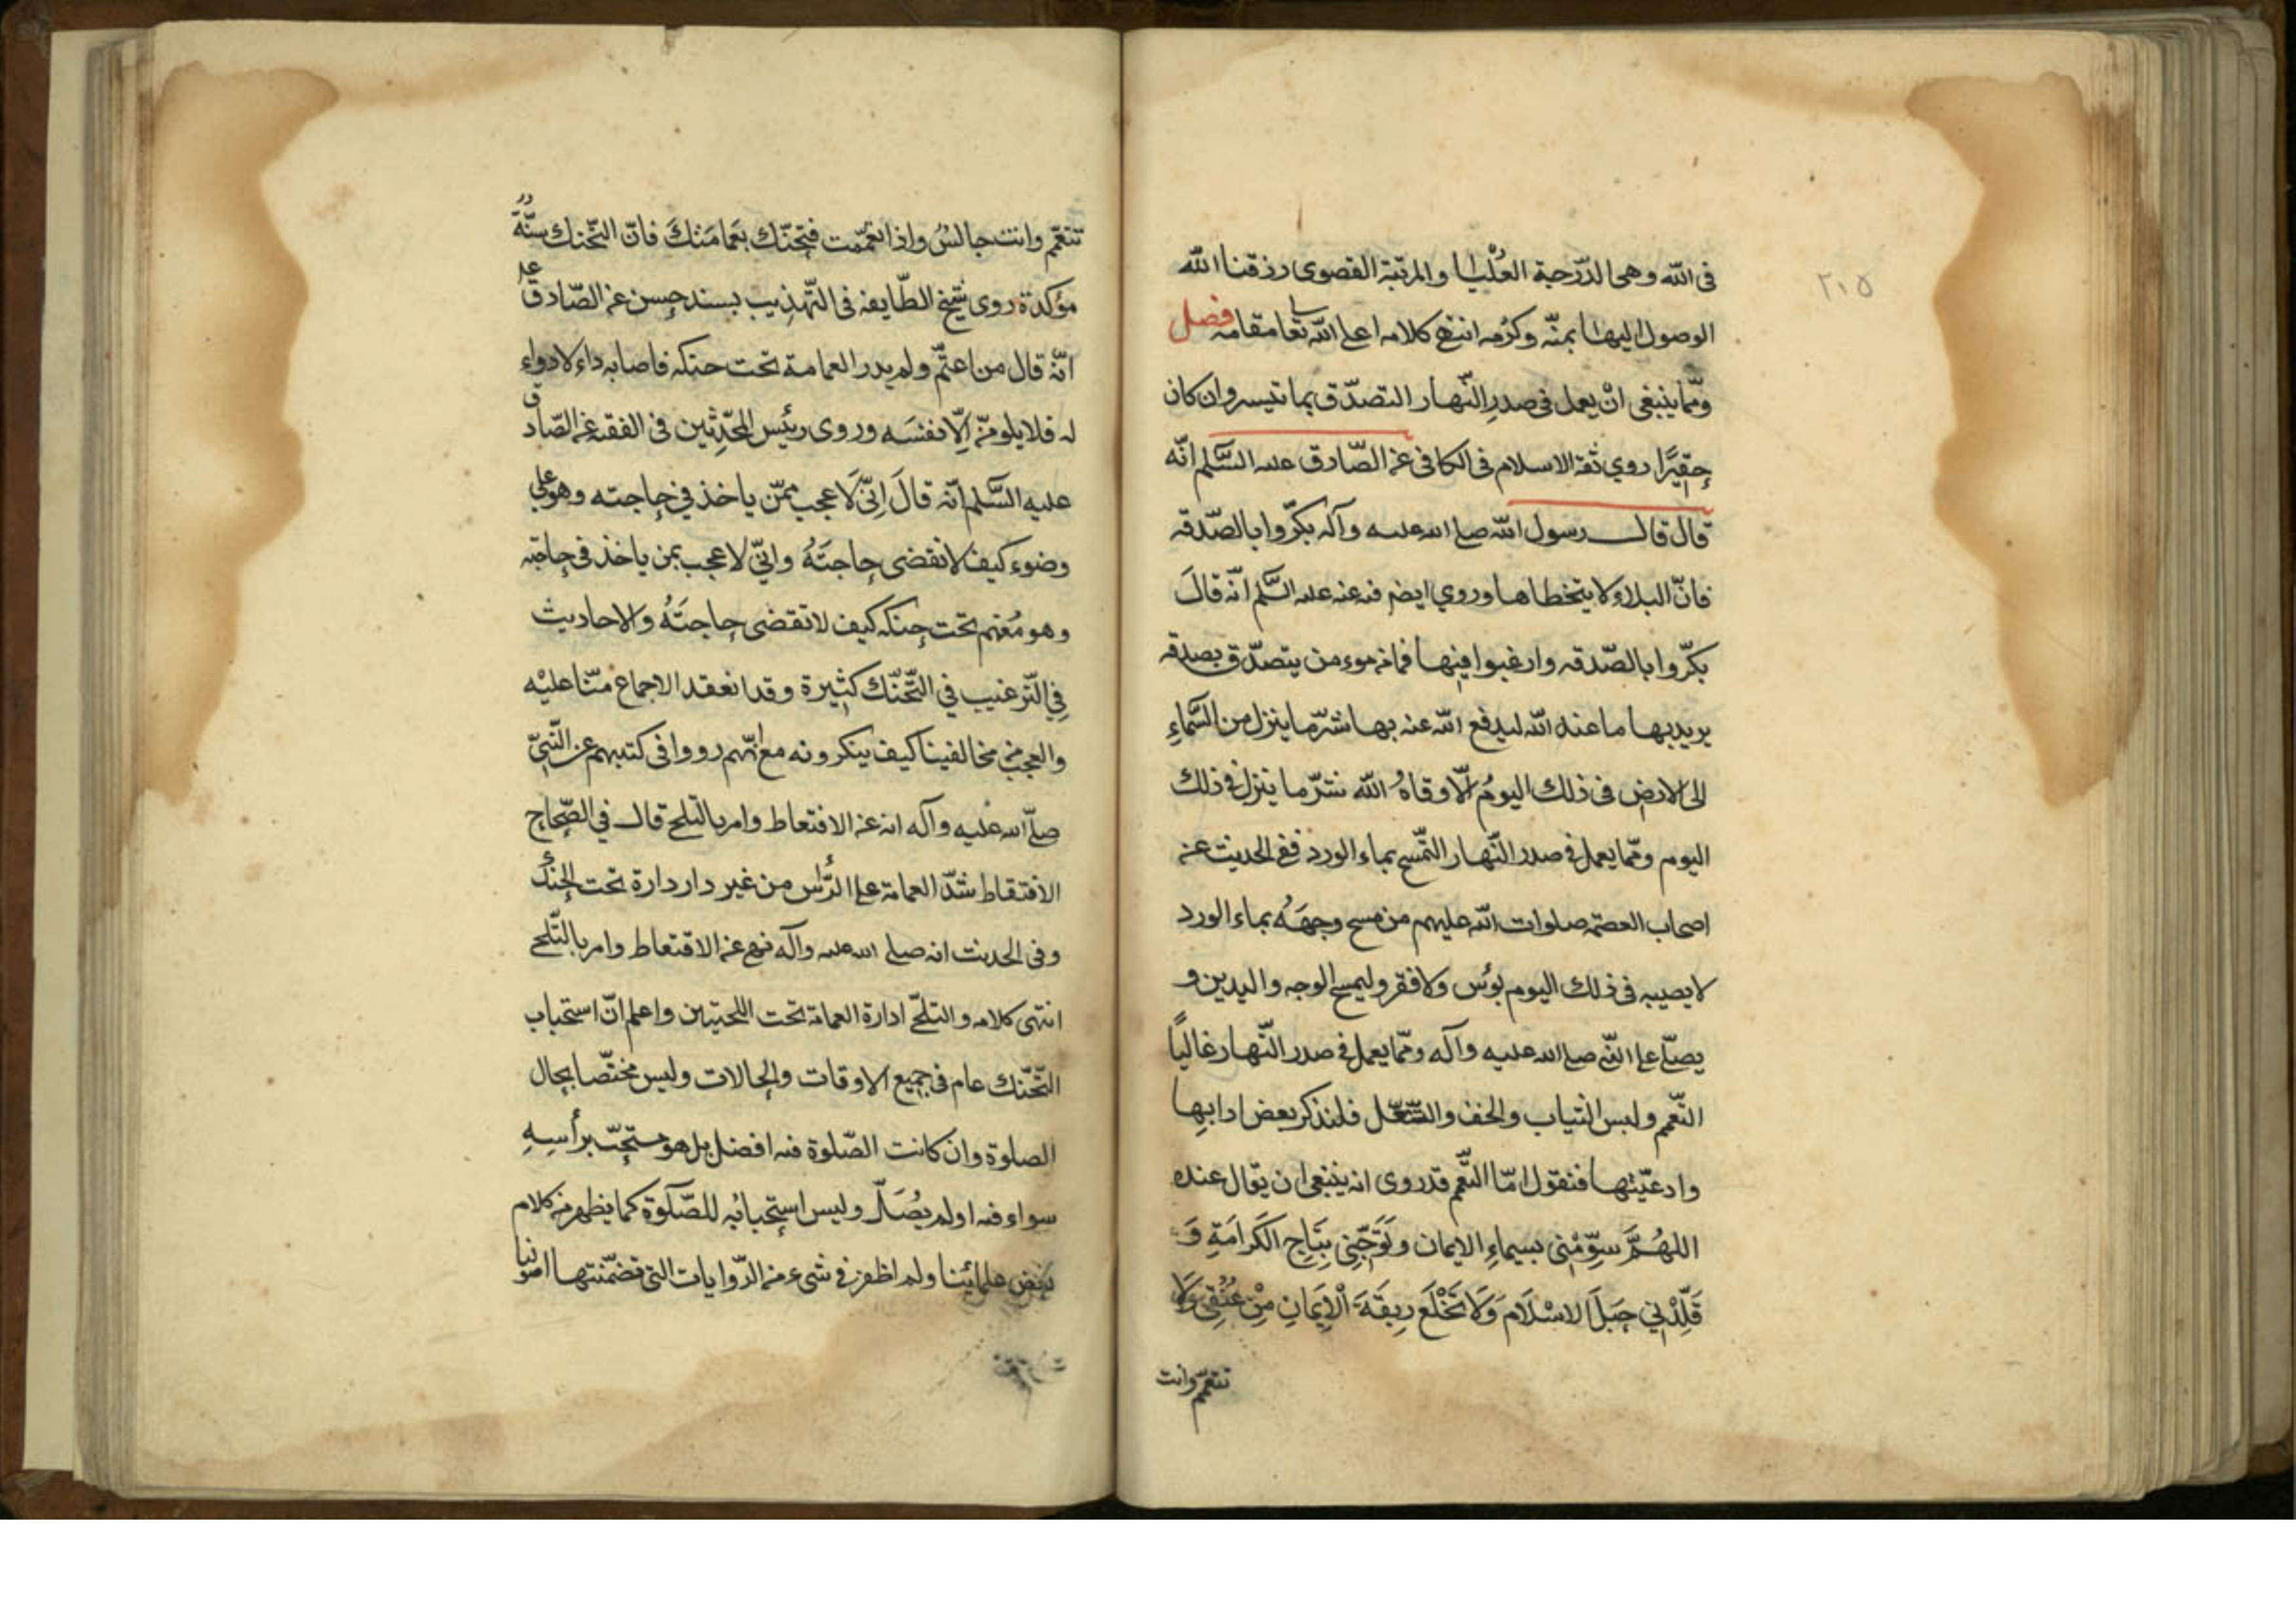 ٢١٥
فى الله وهى الدّرجة العُلْيا والمرتبة القصوى رزقنا الله
الوصول اليها بمنّه وكرُمه انتهى كلامه اعلى الله تعا مقامه فصل
وممّا ينبغى انْ يعمل فى صدرِ النّهار التصدّق بما تيسر وان كان
حقيرًا روي ثقة الاسلام فى الكافى عن الصّادق عليه السَّلم انّه
قال قال رسول الله صلى الله عليه وآله بكّروا بالصّدقه
فانّ البلاء لا يتخطاها وروي ايضا فيه عنه عليه السَّلم انّه قالَ
بكّروا بالصّدقه وارغبوا فيها فما من موءمن يتصدّق بصدقه
يريد بها ما عند الله ليدفع الله عنه بها شرّ ما ينزل من السَّماءِ
الى الارض فى ذلك اليومُ الّا وقاهُ الله شرّ ما ينزل فى ذلك
اليوم وممّا يعمل فى صدر النّهار التّمسح بماء الورد ففى الحديث عن
اصحاب العصمة صلوات الله عليهم من مسح وجهَهُ بماء الورد
لا يصيبه فى ذلك اليوم بؤس ولا فقر وليمسح الوجه واليدين و
يصلّى على النّبى صلى الله عليه وآله وممّا يعمل فى صدر النّهار غالبًا
التّعمم ولبس الثياب والخف والنّعل فلنذكر بعض ادابها
وادعيّتها فنقول امّا التّعمم قد روى انه ينبغى ان يقال عنده
اللهُمَّ سوِّمْنى بسيماءِ الايمان وتَوَّجْنى بِتَاجِ الكَرامَةِ وَ
قَلِّدْنِي حَبَلَ الاسْلَام وَلَا تَخْلَع رِبقَةَ الْإيمَانِ مِنْ عُنُقِى وَلَا
تتعمّم وانت
تتعمّم وانت جالسُ واذا تعمّمت فتحنّك بعَمامَتكَ فانّ التّحنك سنّةً
مؤكدة روى شيخ الطّايفه فى التّهذيب بسند حسن عن الصّادق عل
انّه قال من اعتمّ ولم يدر العمامة تحت حنكه فاصابه داء لا دواء
له فلا يلومنّ الّا نفسَه وروى رئيس المحدّثين فى الفقيه عن الصّادق
عليه السَّلم انّه قالَ اِنّى لَاعجب ممّن ياخذ في حاجته وهو على
وضوء كيف لا تقضى حاجتَهُ وانّي لاعجب بمن ياخذ فى حاجته
وهو مُعتم تحت حنكه كيف لا تقضى حاجتَهُ والاحاديث
فِي التّرغيب في التّحنّك كثيرة وقد انعقد الاجماع منّا عليْه
والعجب من مخالفينا كيف ينكرونه مع انّهم رووا فى كتبهم عن النّبىّ
صلّى الله عليه وآله انه عن الاقتعاط وامر بالتلحى قال في الصّحاح
الاقتقاط شدّ العمامة على الرّأس من غير دار دارة تحت الحنك
وفى الحديث انه صلى الله عليه وآله نهى عن الاقتعاط وامر بالتّلحى
انتهى كلامه والتلحّى ادارة العمامة تحت اللحيتين واعلم انّ استحباب
التّحنّك عام فى جميع الاوقات والحالات وليس مختصّا بحال
الصلوة وان كانت الصّلوة فيه افضل بل هو مستحبّ برأسِهِ
سواء فيه او لم يُصَلّ وليس استحبابُه للصّلوةِ كما يظهر من كلام
بعض علمائنا ولم اظفر فى شىء من الرّوايات التى تضمّنتها